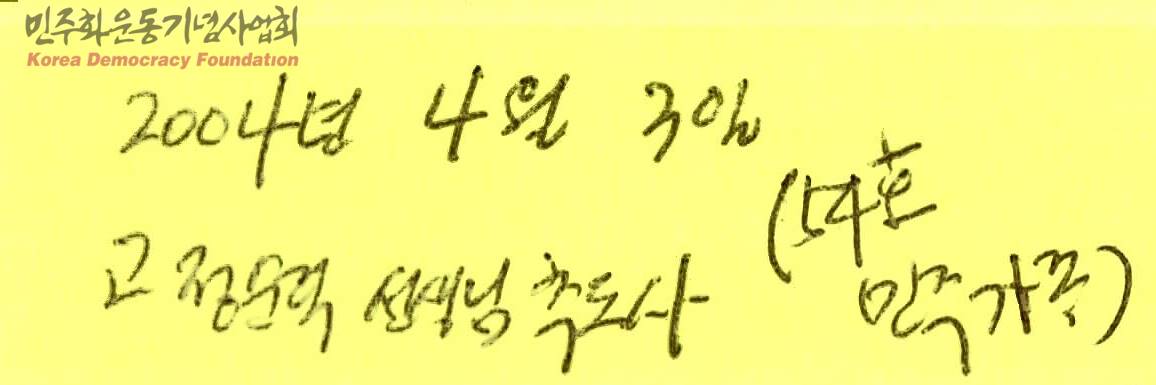 민주화운동기념사업회
Korea Democracy Foundation
2004년 4월 3일
고 정운력 선생님 추도사
(54호
민주가족)